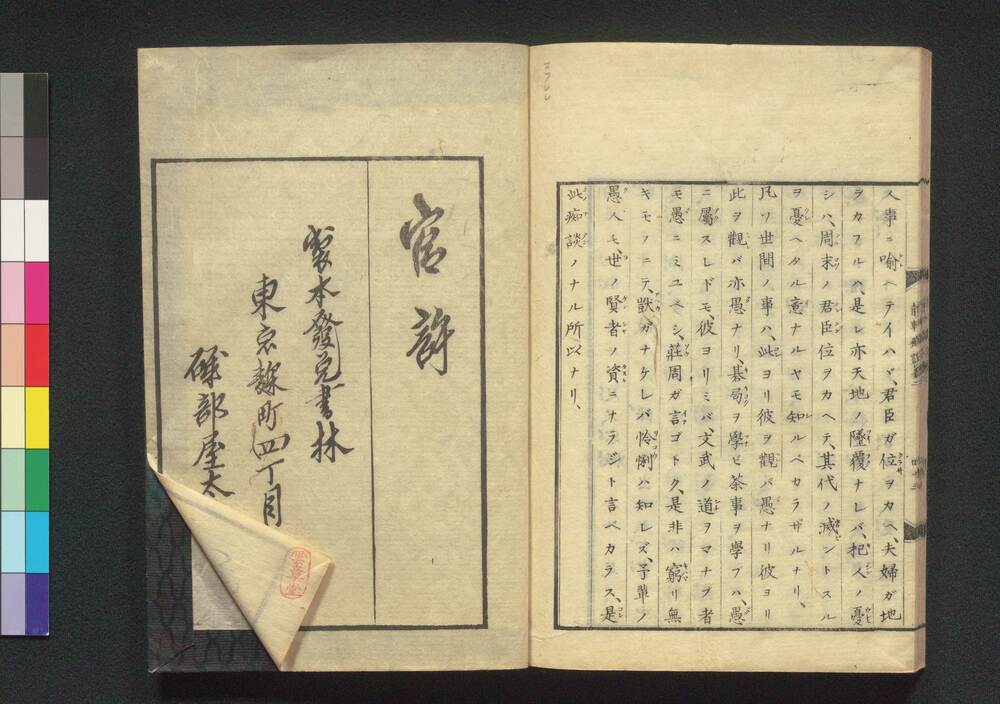 人事ニ喩ヘテイハヾ、君臣ガ位ヲカヘ、夫婦ガ地
ヲカフルハ、是レ亦天地ノ墜覆ナレバ、杞人ノ憂
シハ、周末ノ君臣位ヲカヘテ、其代ノ滅ントスル
ヲ憂ヘタル意ナルヤモ知ルベカラザルナリ、
凡ソ世間ノ事ハ、此ヨリ彼ヲ觀バ愚ナリ彼ヨリ
此ヲ觀バ亦愚ナリ、碁局ヲ學ビ茶事ヲ學フハ、愚
ニ屬スレドモ、彼ヨリミバ、文武ノ道ヲマナブ者
モ愚ニミユベシ、莊周ガ言ゴトク、是非ハ窮リ無
キモノニテ、獃ガナケレバ怜悧ハ知レズ、予輩ノ
愚人モ、世ノ賢者ノ資ニナラジト言ベカラス、是
此痴談ノナル所以ナリ、
官許
製本發兌書林
東京麹町四丁目
磯部屋太